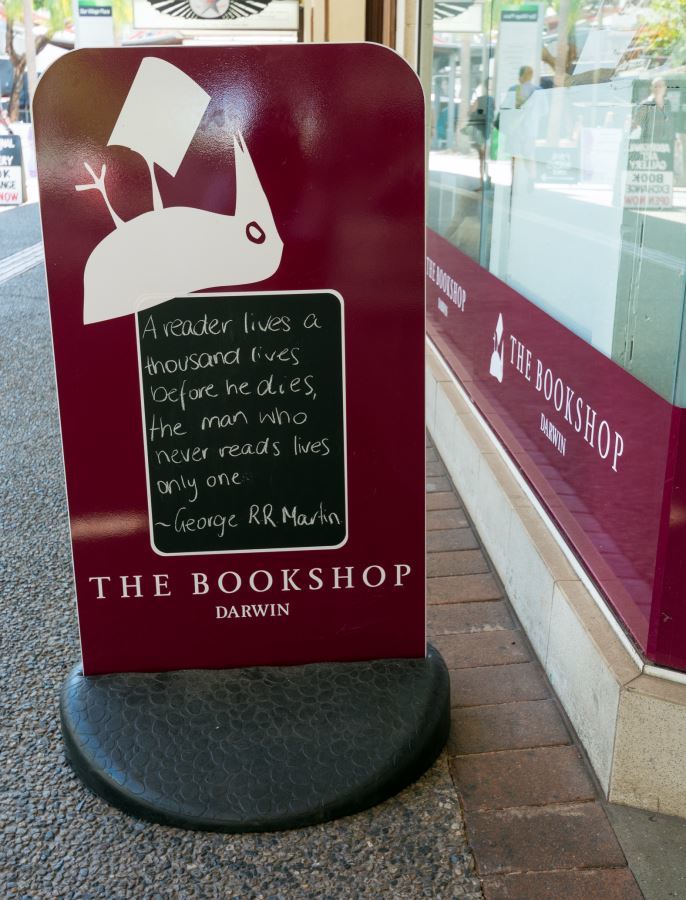 A reader lives a
thousand lives
before he dies,
the man who
never reads lives
only one
~George RR Martin
THE BOOKSHOP
DARWIN
THE BOOKSHOP
DARWIN
THE BOOKSHOP
DARWIN
GALLERY
BOOK
EXCHANGE
OPEN NOW